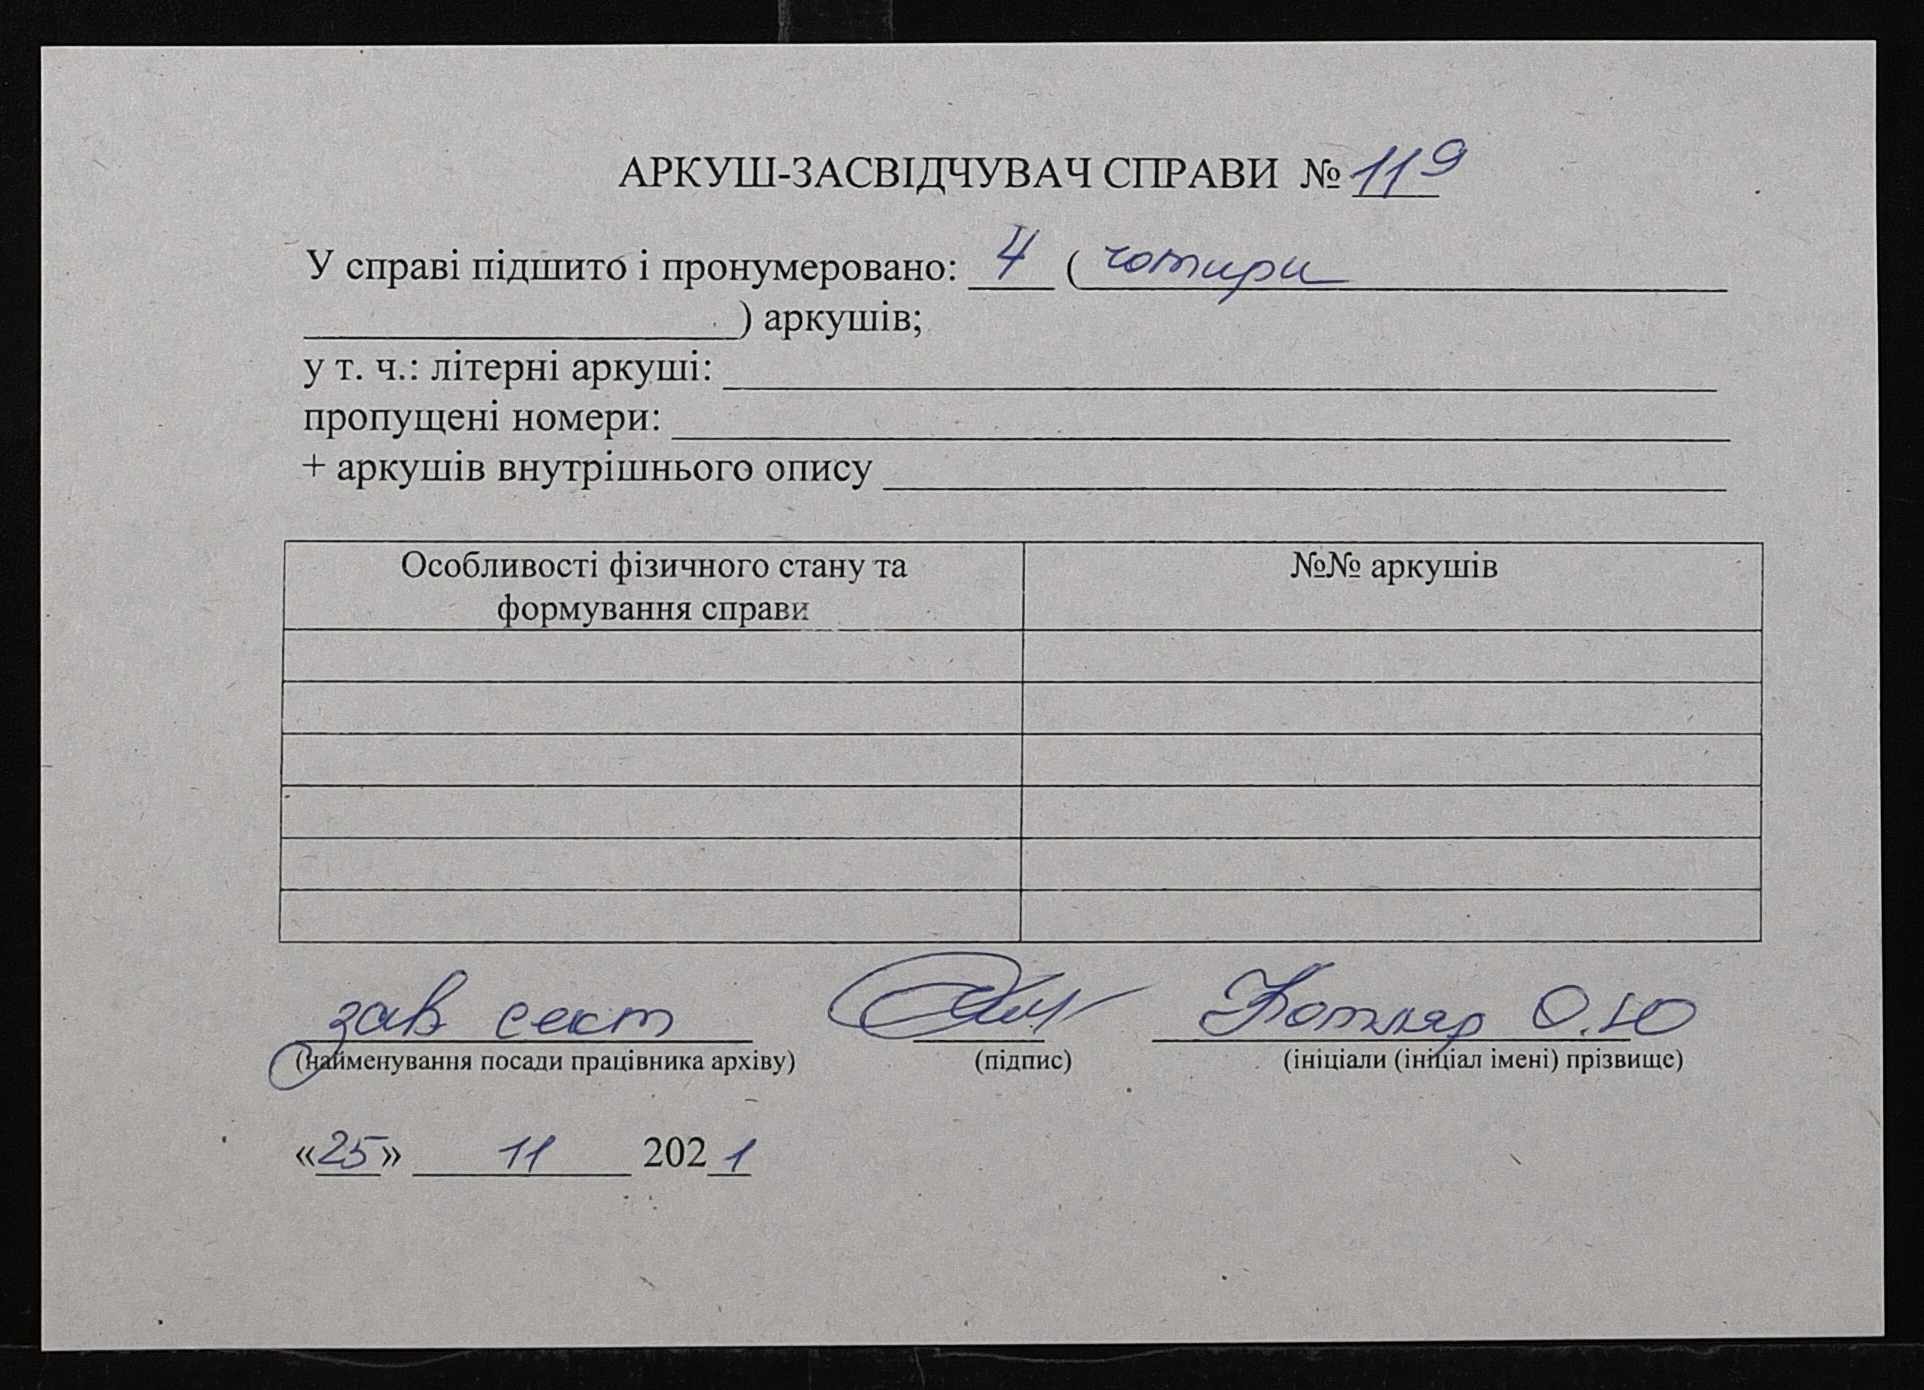 АРКУШ-ЗАСВІДЧУВАЧ СПРАВИ № 119
У справі підшито і пронумеровано: 4 ( чотири
) аркушів;
у т. ч.: літерні аркуші:
пропущені номери:
+ аркушів внутрішнього опису
Особливості фізичного стану та
формування справи
№№ аркушів
зав сект Котляр О.Ю
(найменування посади працівника архіву) (підпис) (ініціали (ініціал імені) прізвище)
«25» 11 2021